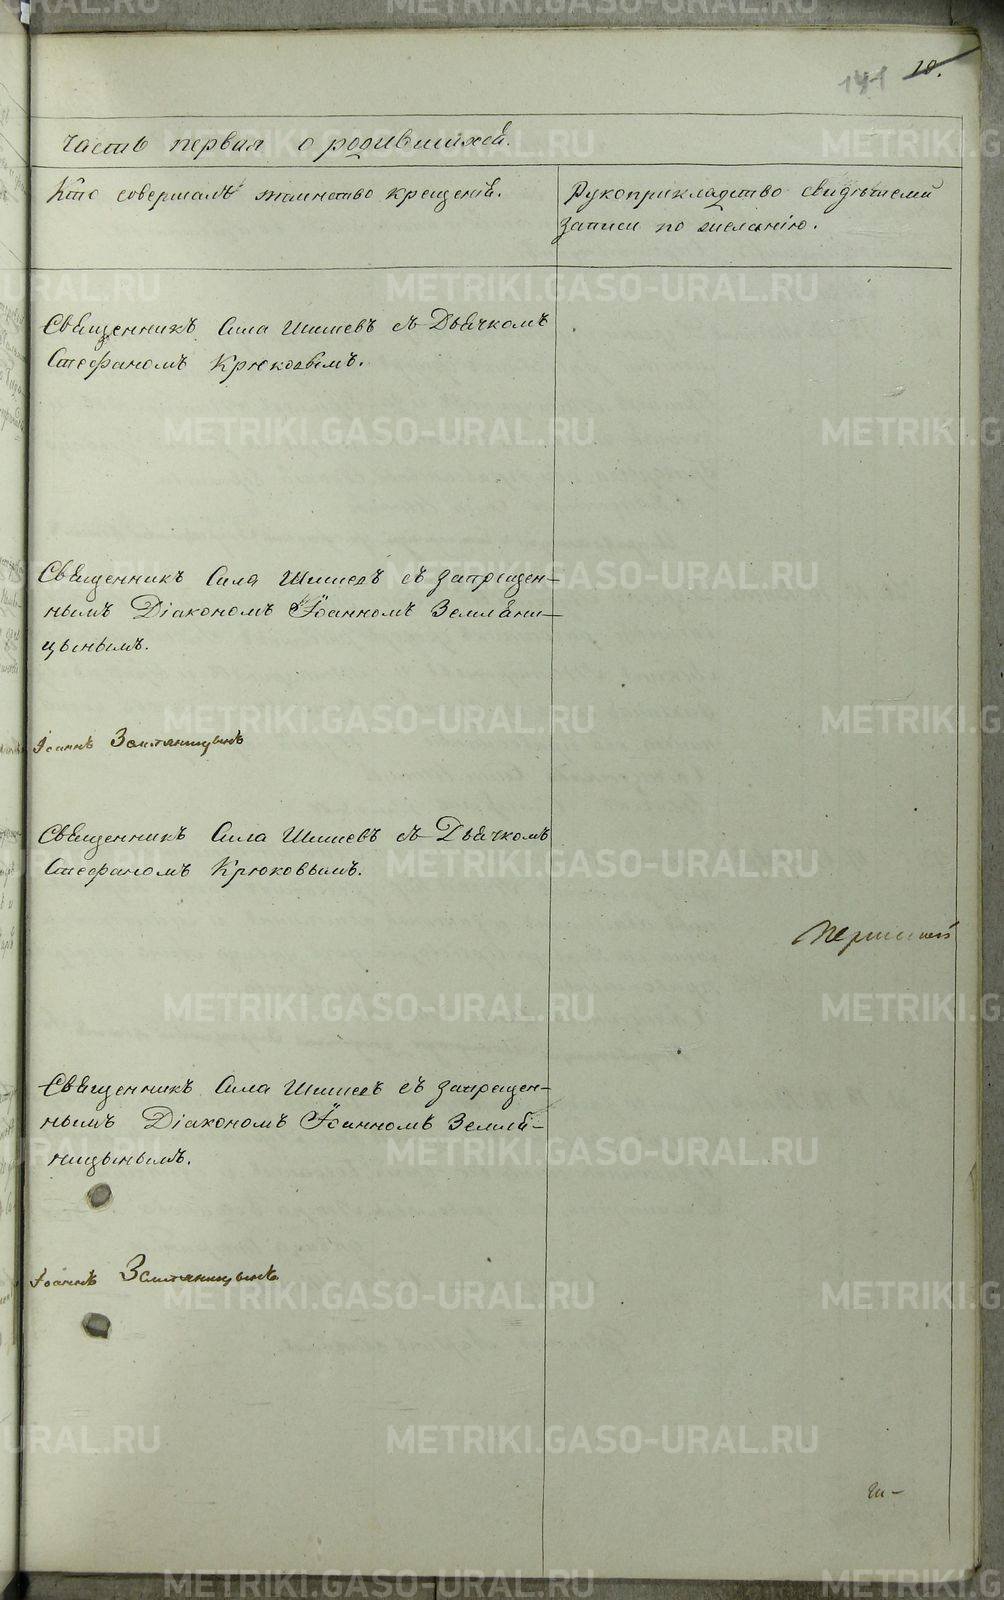 141 10.
Часть первая о родившихся.
Кто совершалъ таинство крещенія.
Рукоприкладство свидѣтелей
записи по желанію.
Священникъ Сила Шишевъ съ Дьячкомъ
Стефаномъ Крюковымъ.
Священникъ Сила Шишевъ съ запрещен-
нымъ Діакономъ Іоанномъ Земляни-
цынымъ.
Іоаннъ Земляницынъ
Священникъ Сила Шишевъ съ Дьячкомъ
Стефаномъ Крюковымъ.
Священникъ Сила Шишевъ съ запрещен-
нымъ Діакономъ Іоанномъ Земля-
ницынымъ.
Іоаннъ Земляницынъ
METRIKI.GASO-URAL.RU